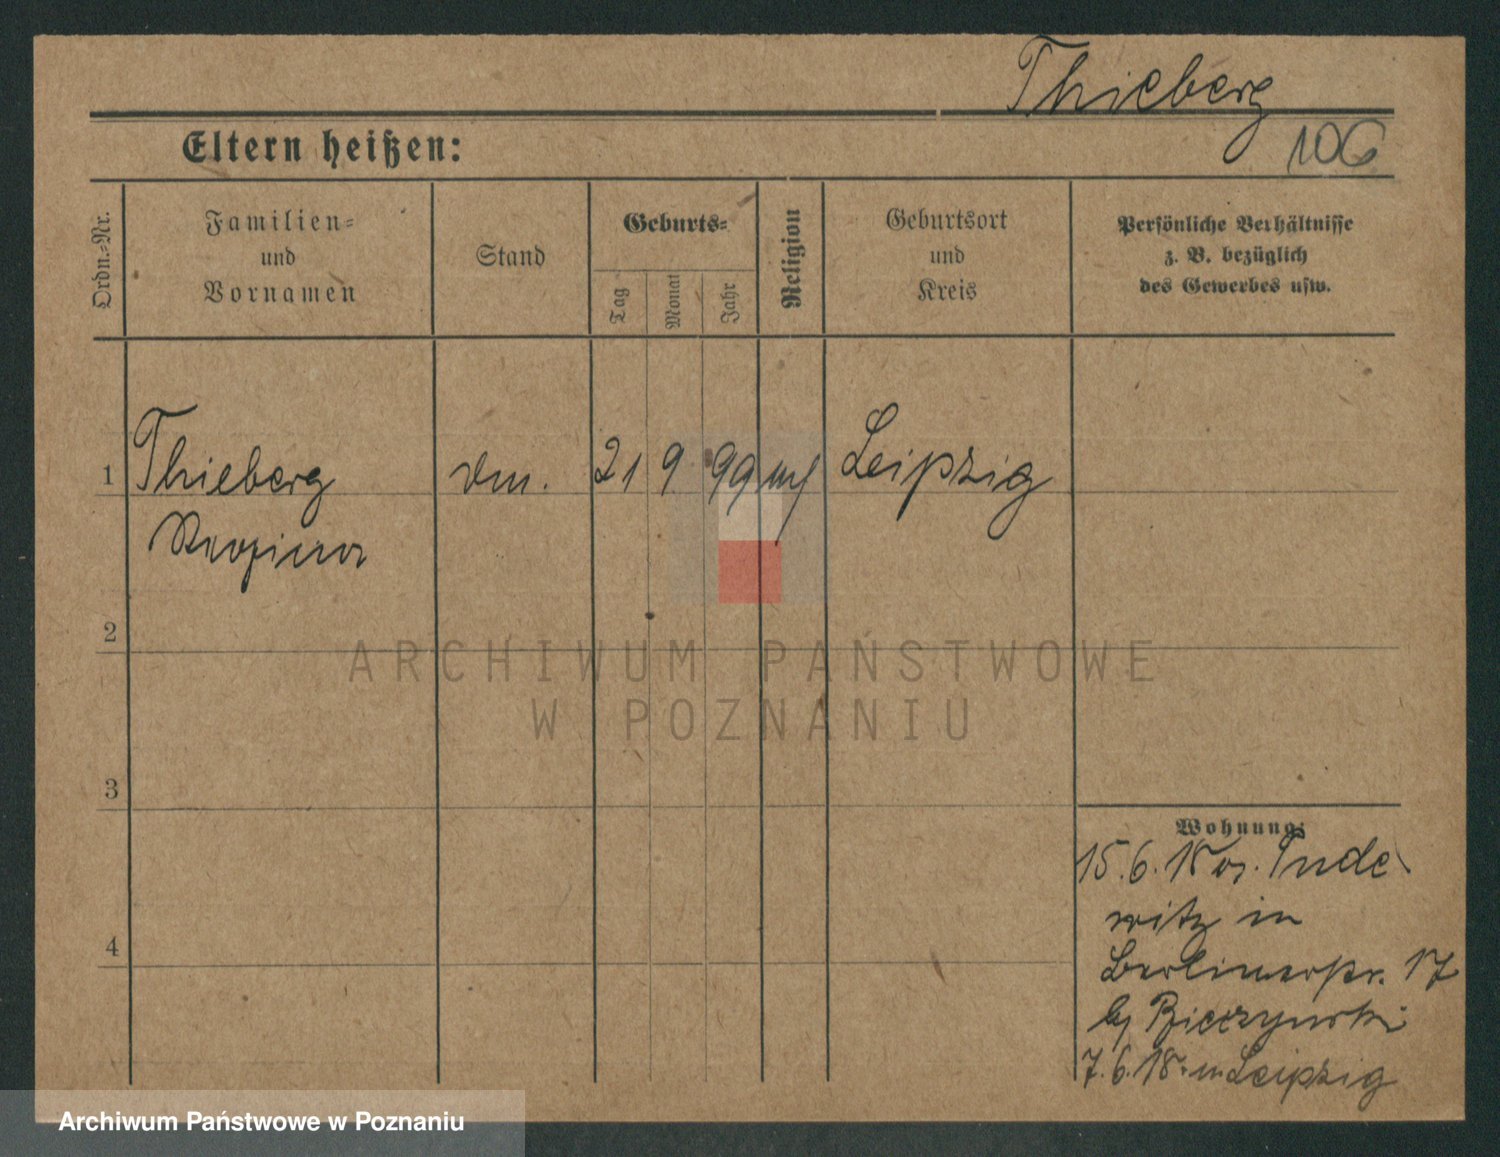 Thieberg
106
Eltern heißen:
Ordn.-Nr.
Familien-
und
Vornamen
Stand
Geburts-
Tag
Monat
Jahr
Religion
Geburtsort
und
Kreis
Persönliche Verhältnisse
z. B. bezüglich
des Gewerbes usw.
1 Thieberg 21 9 99 Leipzig
2
3
4
Wohnung:
15.6.18 Pude
witz in
Berlinerstr. 17
7.6.18. n. Leipzig
ARCHIWUM PAŃSTWOWE
W POZNANIU
Archiwum Państwowe w Poznaniu